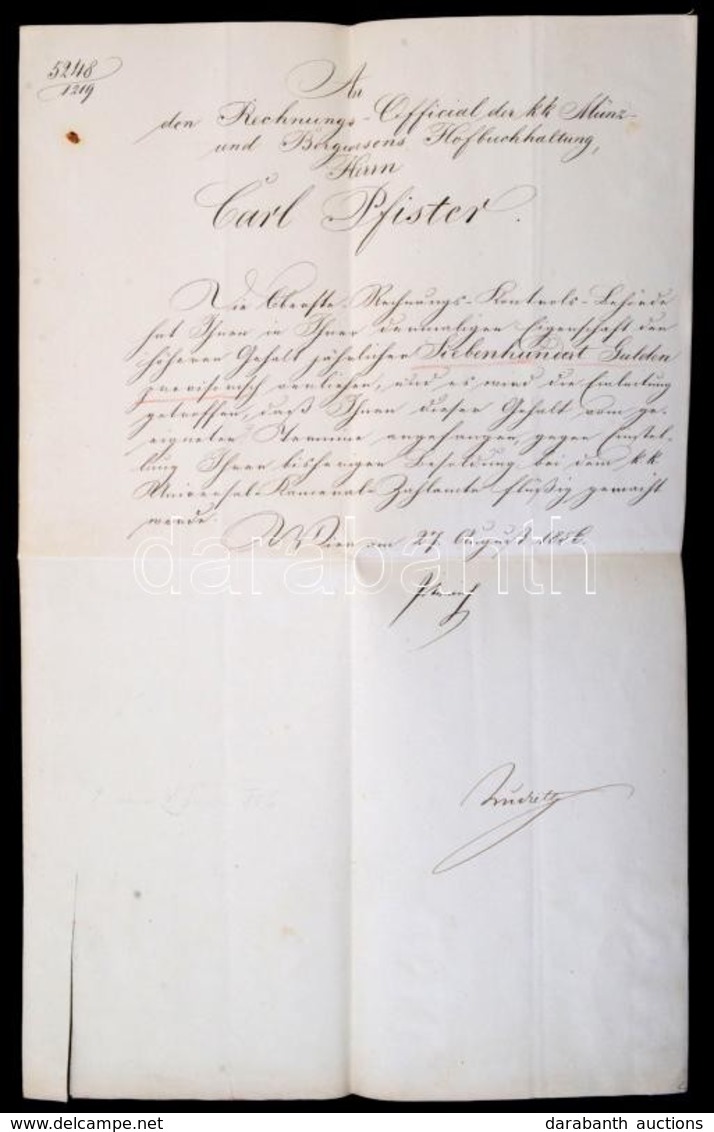 5248
1219
An
den Rechnungs-Official der kk Münz-
und Bergwesens Hofbuchhaltung,
Herrn
Carl Pfister.
Die Oberste Rechnungs-Kontrols-Behörde
hat Ihnen in Ihrer dermaligen Eigenschaft den
höheren Gehalt jährlicher Siebenhundert Gulden
provisorisch verliehen, und es wird die Einleitung
getroffen, daß Ihnen dieser Gehalt vom ge-
eigneten Termine angefangen, gegen Einstel-
lung Ihrer bisherigen Besoldung bei dem k.k.
Universal-Kameral-Zahlamte flüßig gemacht
werde.
Wien am 27. August 1856.
darabanth
delcampe.net
darabanth auctions